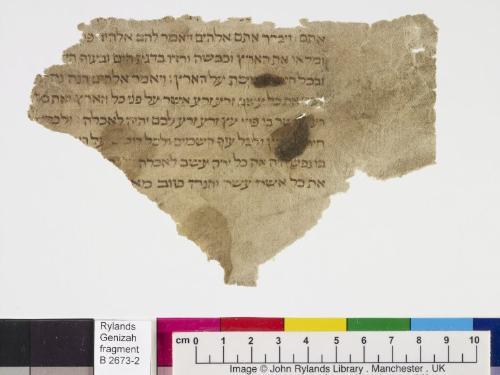 אתם : ויברך אתם אלהים ויאמר להם אלהים פ
ומלאו את הארץ וכבשה ורדו בדגת הים ובעוף ה
ובכל על הארץ : ויאמר אלהים הנה
כל עשב זרע זרע אשר על פני כל הארץ ואת
בו פרי עץ זרע זרע לכם יהיה לאכלה
ולכל עוף השמים ולכל על
בו נפש חיה את כל ירק עשב לאכלה
את כל אשר עשה והנה טוב מא
Rylands
Genizah
fragment
B 2673-2
cm 0 1 2 3 4 5 6 7 8 9 10
Image © John Rylands Library . Manchester . UK